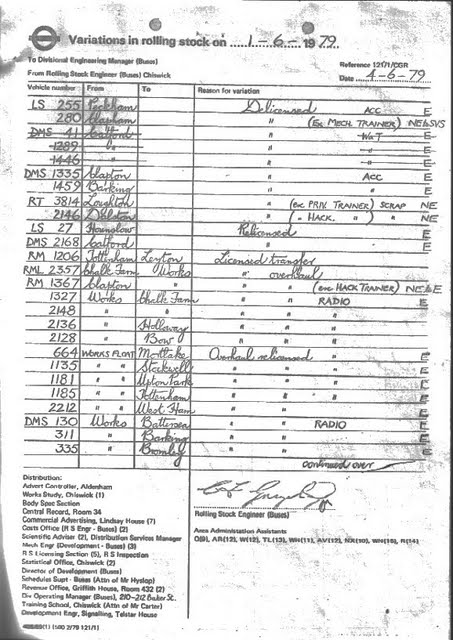 Variations in rolling stock on 1-6-1979.
To Divisional Engineering Manager (Buses)
Reference 121/1/CGR
From Rolling Stock Engineer (Buses) Chiswick
Date 4-6-79
Vehicle number From To Reason for variation
LS 255 Peckham Delicensed ACC E
280 Clapham " (Ex MECH. TRAINER) NE
DMS 41 Catford " E
1289 " " " E
1446 " " " E
DMS 1335 Clapton " ACC E
1459 Barking " " E
RT 3814 Loughton " (ex PRIV. TRAINER) SCRAP NE
2146 Dalston " ( " HACK. " ) " NE
LS 27 Hounslow Relicensed E
DMS 2168 Catford " E
RM 1206 Tottenham Leyton Licensed transfer E
RML 2357 Chalk Farm Works " overhaul E
RM 1367 Clapton " " " (ex HACK TRAINER)
1327 Works Chalk Farm " " RADIO E
2148 " " " " "
2136 " Holloway " " "
2128 " Bow " " "
664 WORKS FLOAT Mortlake Overhaul relicensed " E
1135 " " Stockwell " " " E
1181 " " Upton Park " " " E
1185 " " Tottenham " " " E
2212 " " West Ham " " " E
DMS 130 Works Battersea " " RADIO E
311 " Barking " " " E
335 " Bromley " " " E
continued over
Distribution:
Advert Controller, Aldenham
Works Study, Chiswick (1)
Body Spec Section
Central Record, Room 34
Commercial Advertising, Lindsay House (7)
Costs Office (R S Engr - Buses) (2)
Scientific Adviser (2), Distribution Services Manager
Mech Engr (Development - Buses) (3)
R S Licensing Section (5), R S Inspection
Statistical Office, Chiswick (2)
Director of Development (Buses)
Schedules Supt - Buses (Attn of Mr Hyslop)
Revenue Office, Griffith House, Room 432 (2)
Div Operating Manager (Buses), 210-212 Baker St.
Training School, Chiswick (Attn of Mr Carter)
Development Engr, Signalling, Telstar House
Rolling Stock Engineer (Buses)
Area Administration Assistants
AR(12), W(12), TL(13), WH(11), AV(12), NX(10), WN(10), R(14)
(1) 2/79 121/1)